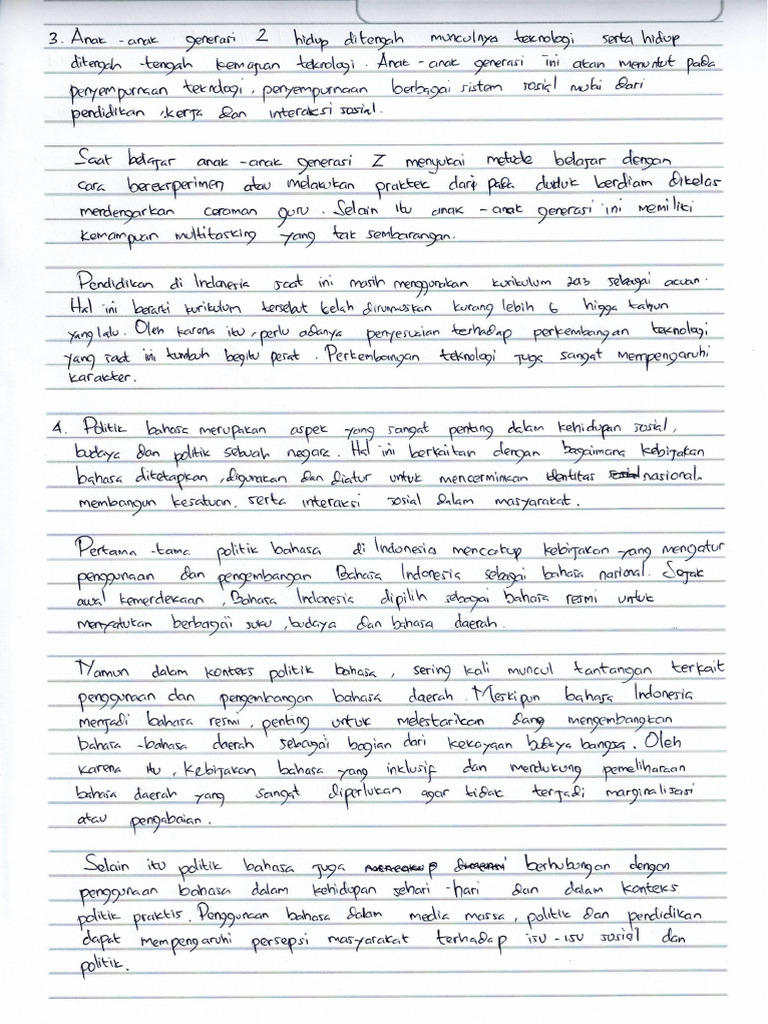 3. Anak -anak generasi Z hidup ditengah munculnya teknologi serta hidup
ditengah -tengah kemajuan teknologi. Anak -anak generasi ini akan menuntut pada
penyempurnaan teknologi, penyempurnaan berbagai sistem sosial mulai dari
pendidikan, kerja dan interaksi sosial.
Saat belajar anak -anak generasi Z menyukai metode belajar dengan
cara bereksperimen atau melakukan praktek dari pada duduk berdiam dikelas
merdengarkan ceramah guru. Selain itu anak -anak generasi ini memiliki
kemampuan multitasking yang tak sembarangan.
Pendidikan di Indonesia saat ini masih menggunakan kurikulum 2013 sebagai acuan.
Hal ini berarti kurikulum tersebut telah dirumuskan kurang lebih 6 higga tahun
yang lalu. Oleh karena itu, perlu adanya penyesuaian terhadap perkembangan teknologi
yang saat ini tumbuh begitu pesat. Perkembangan teknologi juga sangat mempengaruhi
karakter.
4. Politik bahasa merupakan aspek yang sangat penting dalam kehidupan sosial,
budaya dan politik sebuah negara. Hal ini berkaitan dengan bagaimana kebijakan
bahasa ditetapkan, digunakan dan diatur untuk mencerminkan identitas nasional.
membangun kesatuan, serta interaksi sosial dalam masyarakat.
Pertama -tama politik bahasa di Indonesia mencakup kebijakan yang mengatur
penggunaan dan pengembangan Bahasa Indonesia sebagai bahasa nasional. Sejak
awal kemerdekaan, Bahasa Indonesia dipilih sebagai bahasa resmi untuk
menyatukan berbagai suku, budaya dan bahasa daerah.
Namun dalam konteks politik bahasa, sering kali muncul tantangan terkait
penggunaan dan pengembangan bahasa daerah. Meskipun bahasa Indonesia
menjadi bahasa resmi, penting untuk melestarikan dang mengembangkan
bahasa -bahasa daerah sebagai bagian dari kekayaan budaya bangsa. Oleh
karena itu, kebijakan bahasa yang inklusif dan merdukung pemeliharaan
bahasa daerah yang sangat diperlukan agar tidak terjadi marginalisasi
atau pengabaian.
Selain itu politik bahasa juga berhubungan dengan
penggunaan bahasa dalam kehidupan sehari -hari dan dalam konteks
politik praktis. Penggunaan bahasa dalam media massa, politik dan pendidikan
dapat mempengaruhi persepsi masyarakat terhadap isu -isu sosial dan
politik.